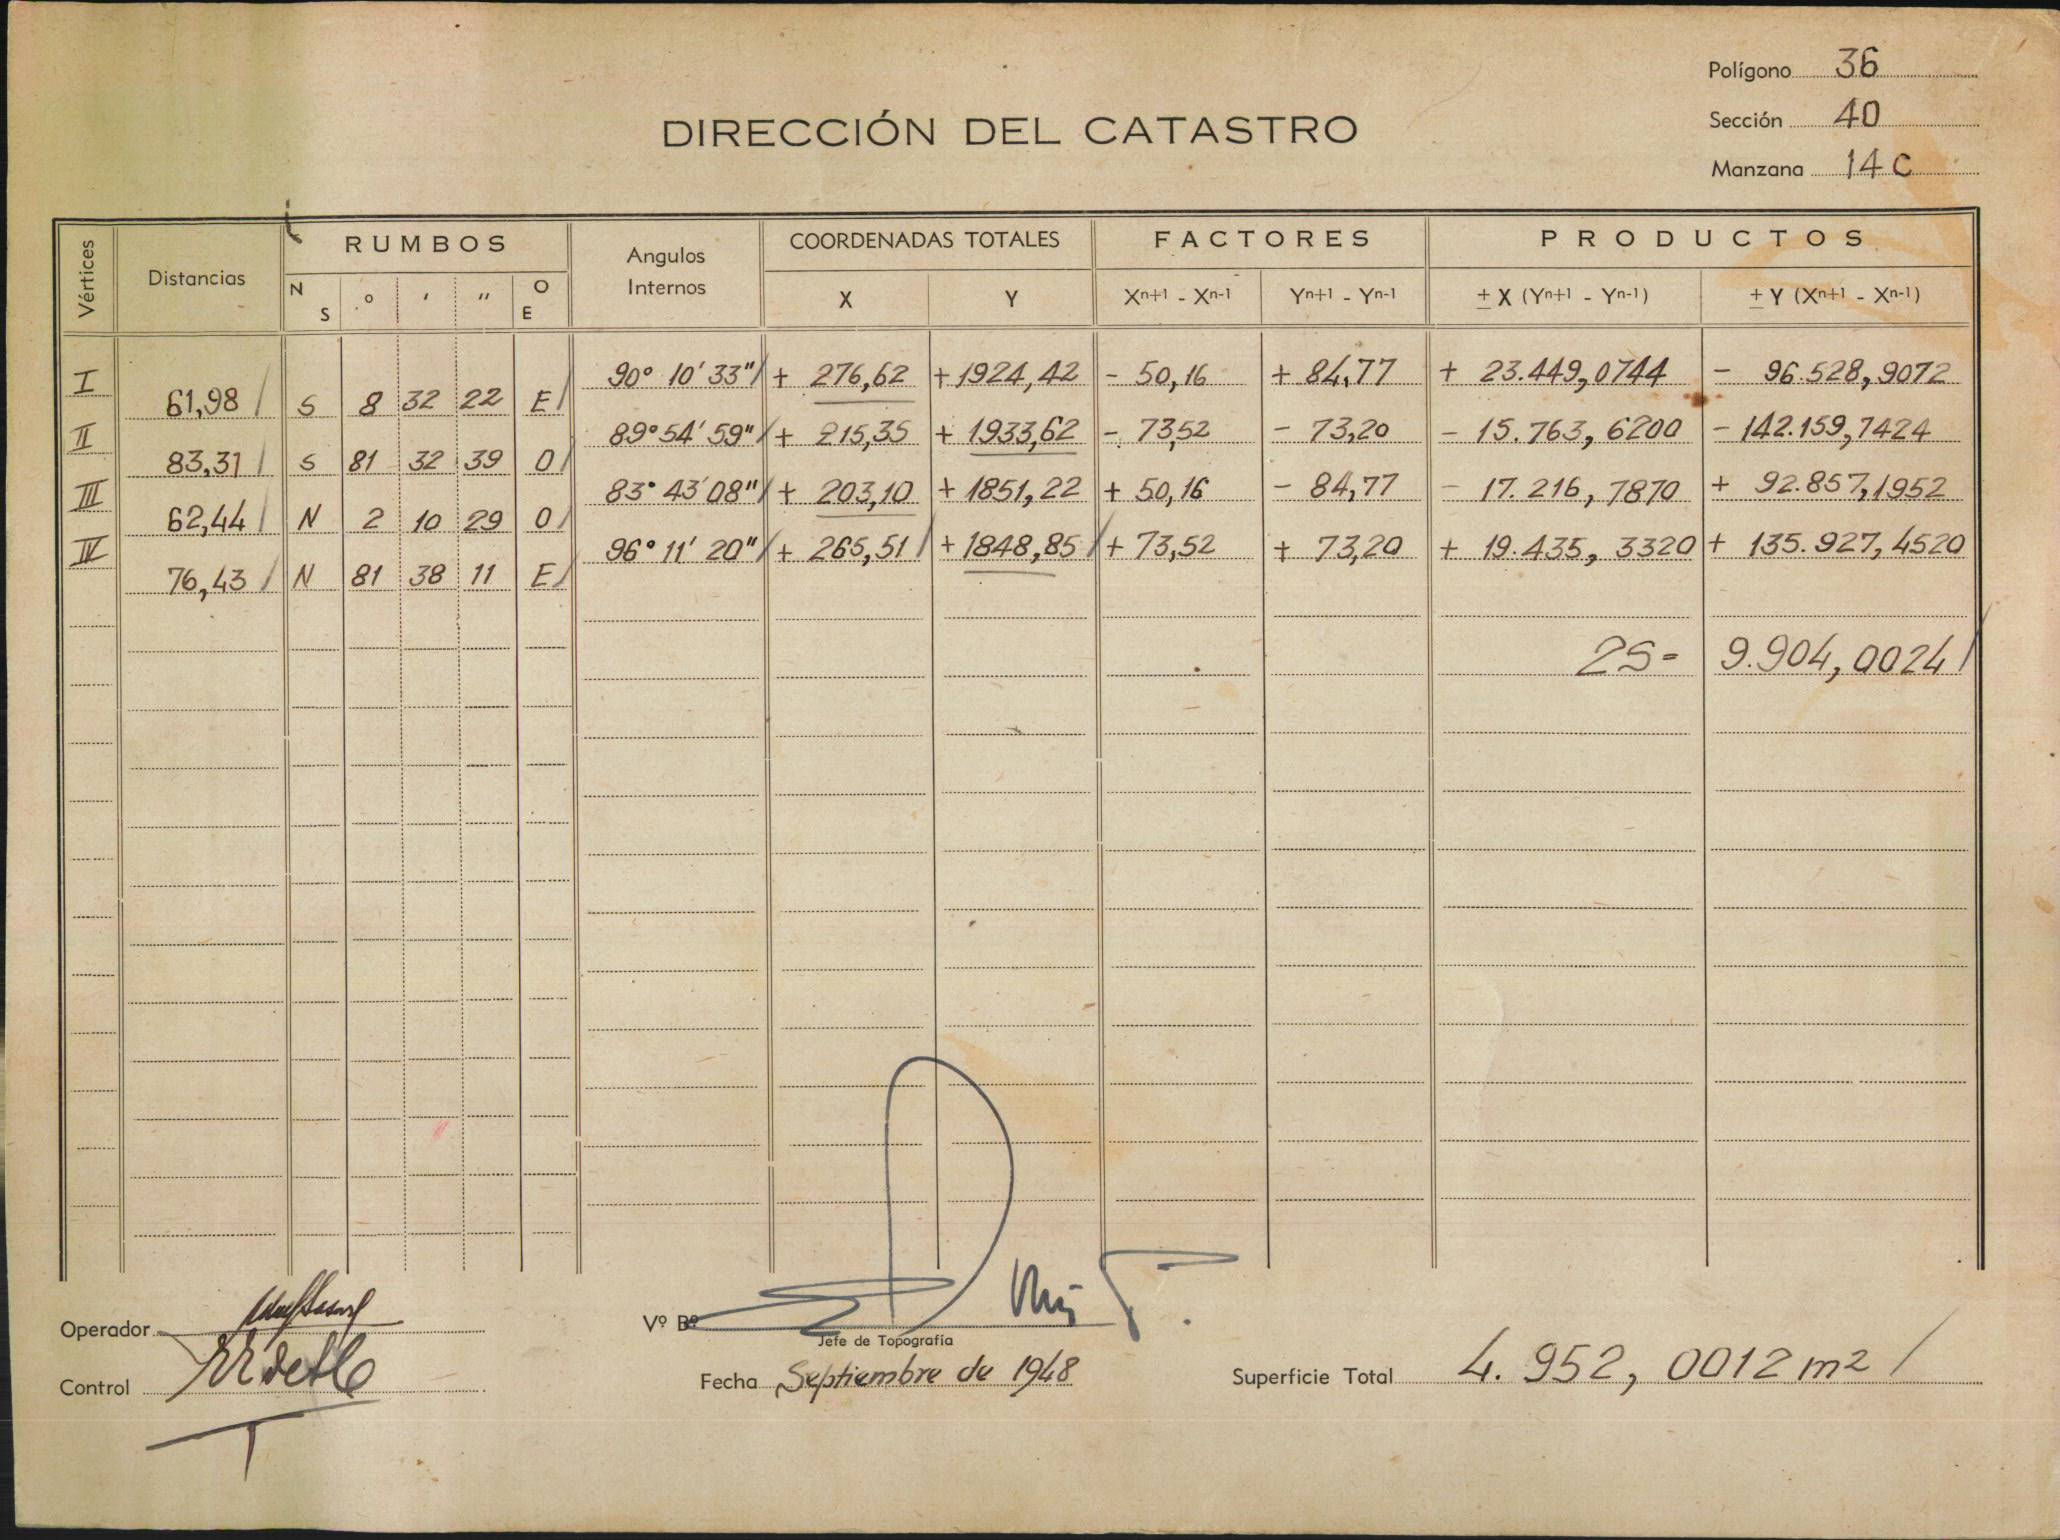 Polígono 36
Sección 40
Manzana 14 C
DIRECCIÓN DEL CATASTRO
Vértices Distancias RUMBOS Angulos Internos COORDENADAS TOTALES FACTORES PRODUCTOS
N S ° ' '' O E X Y Xⁿ⁺¹ - Xⁿ⁻¹ Yⁿ⁺¹ - Yⁿ⁻¹ ± X (Yⁿ⁺¹ - Yⁿ⁻¹) ± Y (Xⁿ⁺¹ - Xⁿ⁻¹)
I 90° 10' 33" / + 276,62 + 1924,42 - 50,16 + 84,77 + 23.449,0744 - 96.528,9072
61,98 / S 8 32 22 E /
II 89° 54' 59" / + 215,35 + 1933,62 - 73,52 - 73,20 - 15.763,6200 - 142.159,7424
83,31 / S 81 32 39 O /
III 83° 43' 08" / + 203,10 + 1851,22 + 50,16 - 84,77 - 17.216,7870 + 92.857,1952
62,44 / N 2 10 29 O /
IV 96° 11' 20" / + 265,51 / + 1848,85 / + 73,52 + 73,20 + 19.435,3320 + 135.927,4520
76,43 / N 81 38 11 E /
2S = 9.904,0024 /
Operador
Vº Bº
Jefe de Topografía
Control
Fecha Septiembre de 1948
Superficie Total 4.952,0012 m2 /